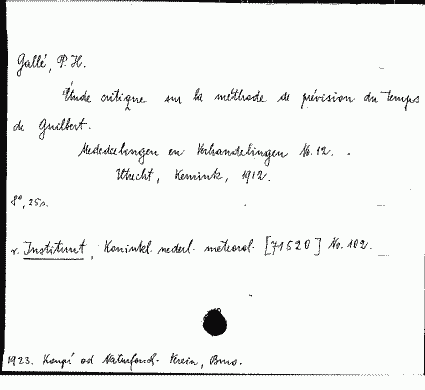 Gallé, P. H.
Étude critique sur la méthode de prévision du temps
de Guilbert.
Mededeelingen en Verhandelingen No. 12.
Utrecht, Kemink, 1912.
8°, 25 s.
v. Instituut, Koninkl. nederl. meteorol. [71520] No. 102.
1923. Koupí od Naturforsch. Verein, Brno.